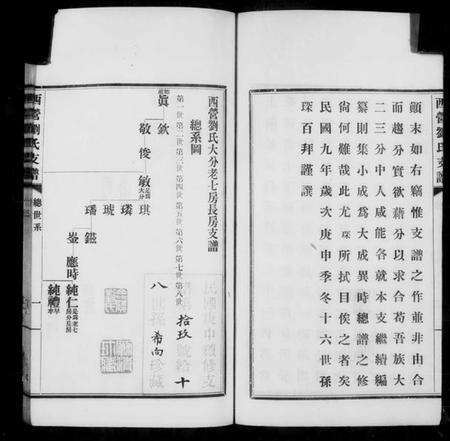 西營劉氏支譜
顛末如右竊惟支譜之作並非由合
而趨分實欲藉分以求合苟吾族大
二三分中人咸能各就本支繼續編
纂則集小成爲大成異時總譜之修
尙何難哉此尤琛所拭目俟之者矣
民國九年歲次庚申季冬十六世孫
琛百拜謹撰
西營劉氏大分老七房長房支譜
總系圖
第一世第二世第三世第四世第五世第六世第七世第八世
眞 欽 敬 俊 敏 琪
璘
琥
璠 鎡 應時 純仁
塋 純禮
拾玖 十
八 世孫 希向 珍藏
西營劉氏支譜
總世系
一